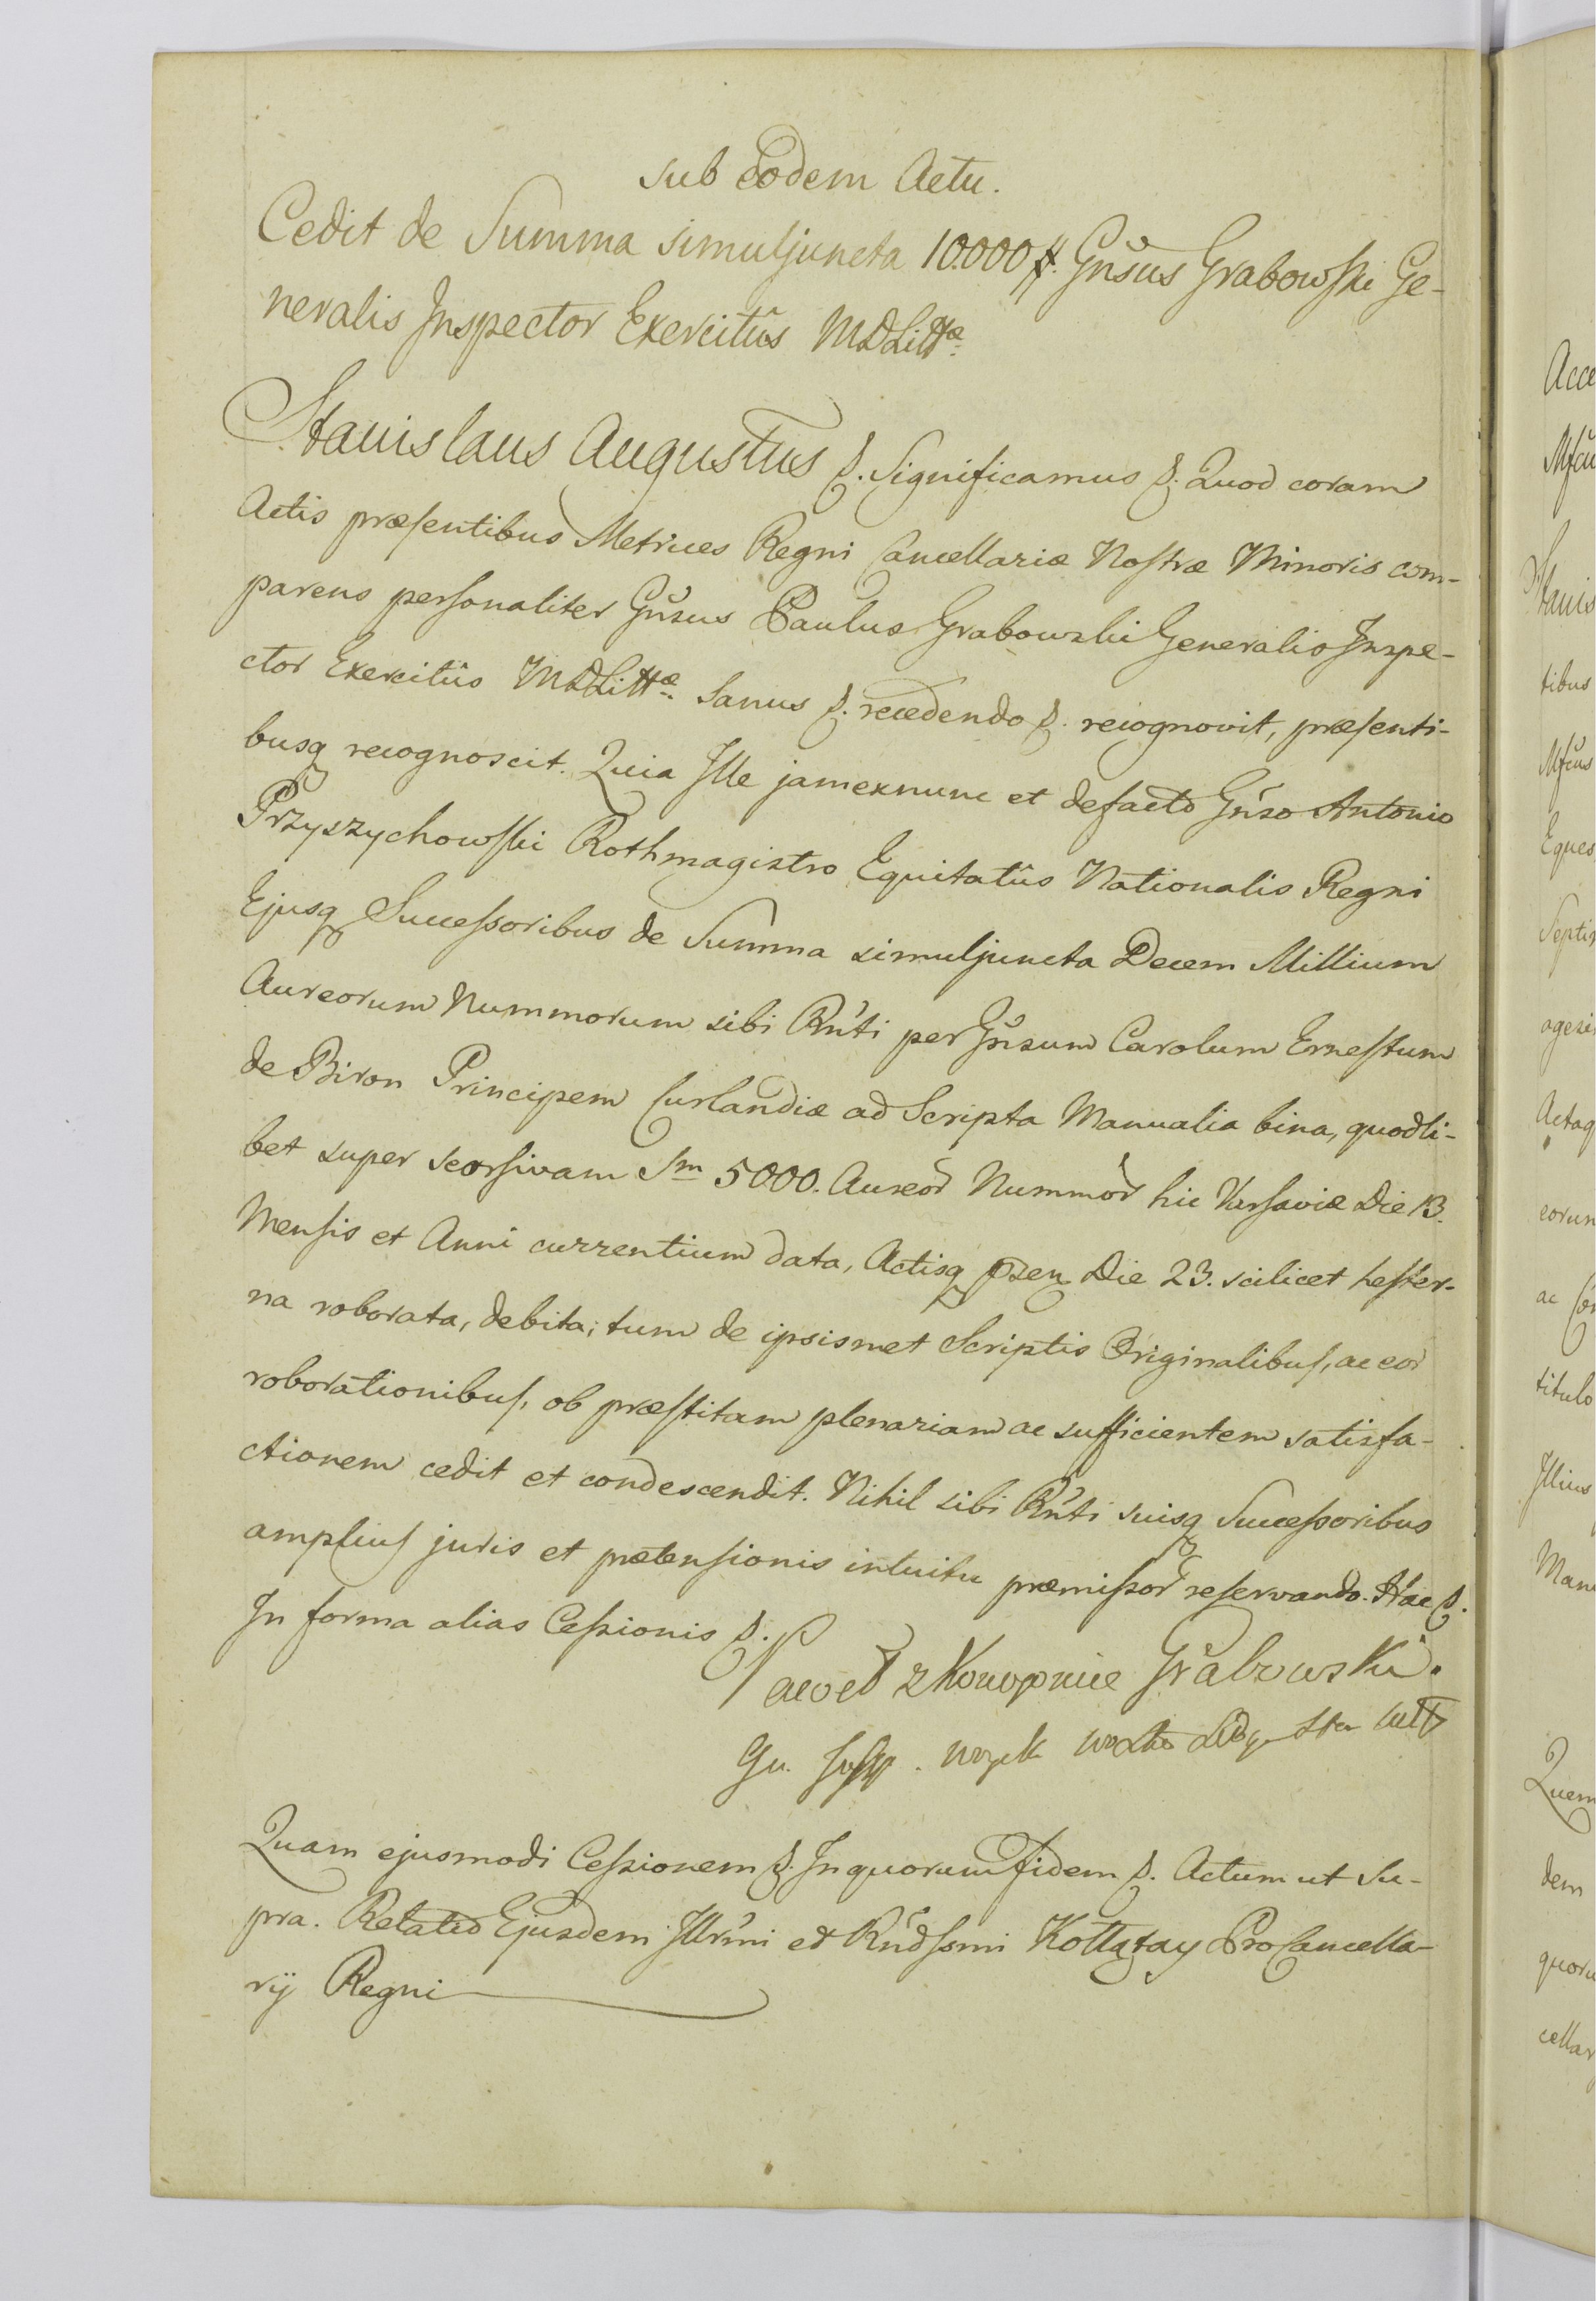 sub eodem Actu.
Cedit de Summa simuljuncta 10.000 #. Gnsus Grabowski Ge-
neralis Inspector Exercitûs MDLittæ
Stanislaus Augustus &. Significamus &. Quod coram
Actis præsentibus Metrices Regni Cancellariæ Nostræ Minoris com-
parens personaliter Gnsus Paulus Grabowski Generalis Inspe-
ctor Exercitûs MDLittæ Sanus &. recedendo &. recognovit, præsenti-
busq recognoscit. Quia Ille jamexnunc et defacto Gnso Antonio
Przyszychowski Rothmagistro Equitatûs Nationalis Regni
Ejusq Successoribus de Summa simuljuncta Decem Millium
Aureorum Nummorum sibi Rnti per Gnsum Carolum Ernestum
de Biron Principem Curlandiæ ad Scripta Manualia bina, quodli-
bet super seorsivam Sm 5000. Aureor Nummor hic Varsaviæ Die 13.
Mensis et Anni currentium data, Actisq præn Die 23. scilicet hester-
na roborata, debita; tum de ipsismet Scriptis Originalibus, ac eor
roborationibus, ob præstitam plenariam ac sufficientem satisfa-
ctionem cedit et condescendit. Nihil sibi Rnti suisq Successoribus
amplius juris et prætensionis intuitu præmissor reservando. Hac &.
In forma alias Cessionis &.
Paweł z Konopnice Grabowski.
Gn. Insp. woysk
Quam ejusmodi Cessionem &. In quorum Fidem &. Actum ut Su-
pra. Relatio Ejusdem Illrmi et Rndssmi Kołłątay ProCancella-
rij Regni